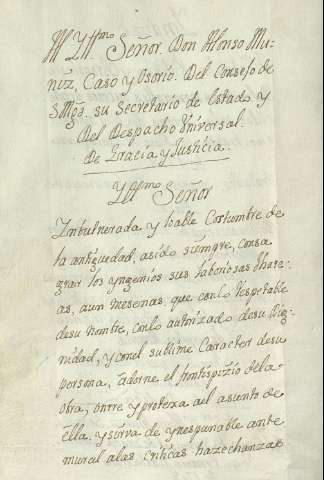 Al Yll.mo Señor. Don Alonso Mu-
ñiz, Caso y Osorio. Del Consejo de
S.Mg.d su Secretario de Estado y
Del Despacho Vniversal.
De Gracia y Justicia.
Yll.mo Señor
Ymbulnerada y loable Costumbre de
la antiguedad, asido siempre, consa
grar los yngenios sus laboriosas thare-
as, aun mesenas, que conlo Respetable
desu nombre, conlo autorizado desu Dig
nidad, y conel sublime Caracter desu
persona, ádorne el frontispizio dela
obra, onrre y protexa ael asunto de
élla, y sirva de ynespunable ante
mural alas Criticas hazechanzas